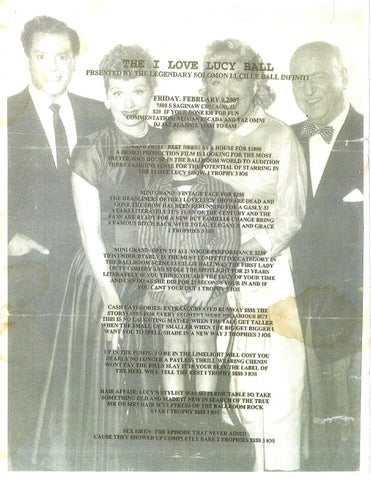 THE I LOVE LUCY BALL
PSENTED BY THE LEGENDARY SOLOMON LUCILLE BALL INFINITI
FRIDAY. FEBRUARY 9,2007
7508 S SAGINAW CHICAGO, IL
$20 IF YOUR DONE $30 FOR FUN
COMMENTATION: NEIMAN ESCADA AND TAZ OMNI
DJ 12AM TO 5AM
GRAND PRIZE: BEST DRESS AS A HOUSE FOR $1000
A DESILU PRODUCTION FILM IS LOOKING FOR THE MOST
PRETEGIOUS HOUSE IN THE BALLROOM WORLD TO AUDITION
THERE FASHIONS SENSE FOR THE POTENTIAL OF STARRING IN
THE I LOVE LUCY SHOW. 1 TROPHY 3 IOS
MINI GRAND: VINTAGE FACE FOR $250
THE HEADLINERS OF THE I LOVE LUCY SHOW ARE DEAD AND
GONE THE SHOW HAS BEEN RERUNNING FOR A GASLY 23
YEARS LITERALLY IT'S TURN OF THE CENTURY AND THE
FANS ARE READY FOR A NEW BUT FAMILIAR CHANGE BRING
A FAMOUS BITCH BACK WITH TOTAL ELEGANCE AND GRACE
1 TROPHY 3 IOS
MINI GRAND: OPEN TO ALL VOGUE PERFORMANCE $250
THIS UNDOUBTABLY IS THE MOST COMPETITIVE CATEGORY IN
THE BALLROOM SCENE LUCILLE BALL WAS THE FIRST LADY
OF TV COMEDY AND STOLE THE SPOTLIGHT FOR 23 YEARS
LITERATELY IF YOU THINK YOU ARE THE LUCY OF YOUR TIME
AND CAN DO AS SHE DID FOR 23 SECONDS YOUR IN AND IF
YOU CANT YOUR OUT 1 TROPHY 3 IOS
CASH CATEGORIES: EXTRAAGGREATED RUNWAY $$$$ THE
STORYLINES FOR EVERY SEGMENT WERE HILARIOUS BUT
THIS IS NO LAUGHING MATTER WHEN THE TALE GET TALLER
WHEN THE SMALL GET SMALLER WHEN THE BIG GET BIGGER I
WANT YOU TO SPELL SHADE IN A NEW WAY 3 TROPHIES 3 IOS
UP IN THE PUMPS: TO BE IN THE LIMELIGHT WILL COST YOU
DEARLY NO LONGER A PAYLESS THRILL WEARING CHENIN
WONT PAY THE BILLS SLAY IT IN YOUR BEST THE LABEL OF
THE HEEL WILL TELL THE REST 1 TROPHY $$$$ 3 IOS
HAIR AFFAIR: LUCY'S STYLIST WAS SO PERDICTABLE SO TAKE
SOMETHING OLD AND MADE IT NEW IN SEARCH OF THE TRUE
MR OR MRS HAIR SCULPTRESS OF THE BALLROOM ROCK
STAR 1 TROPHY $$$$ 3 IOS
SEX SIREN: THE EPISODE THAT NEVER AIRED
CAUSE THEY SHOWED UP COMPLETLY BARE 2 TROPHIES $$$$ 3 IOS